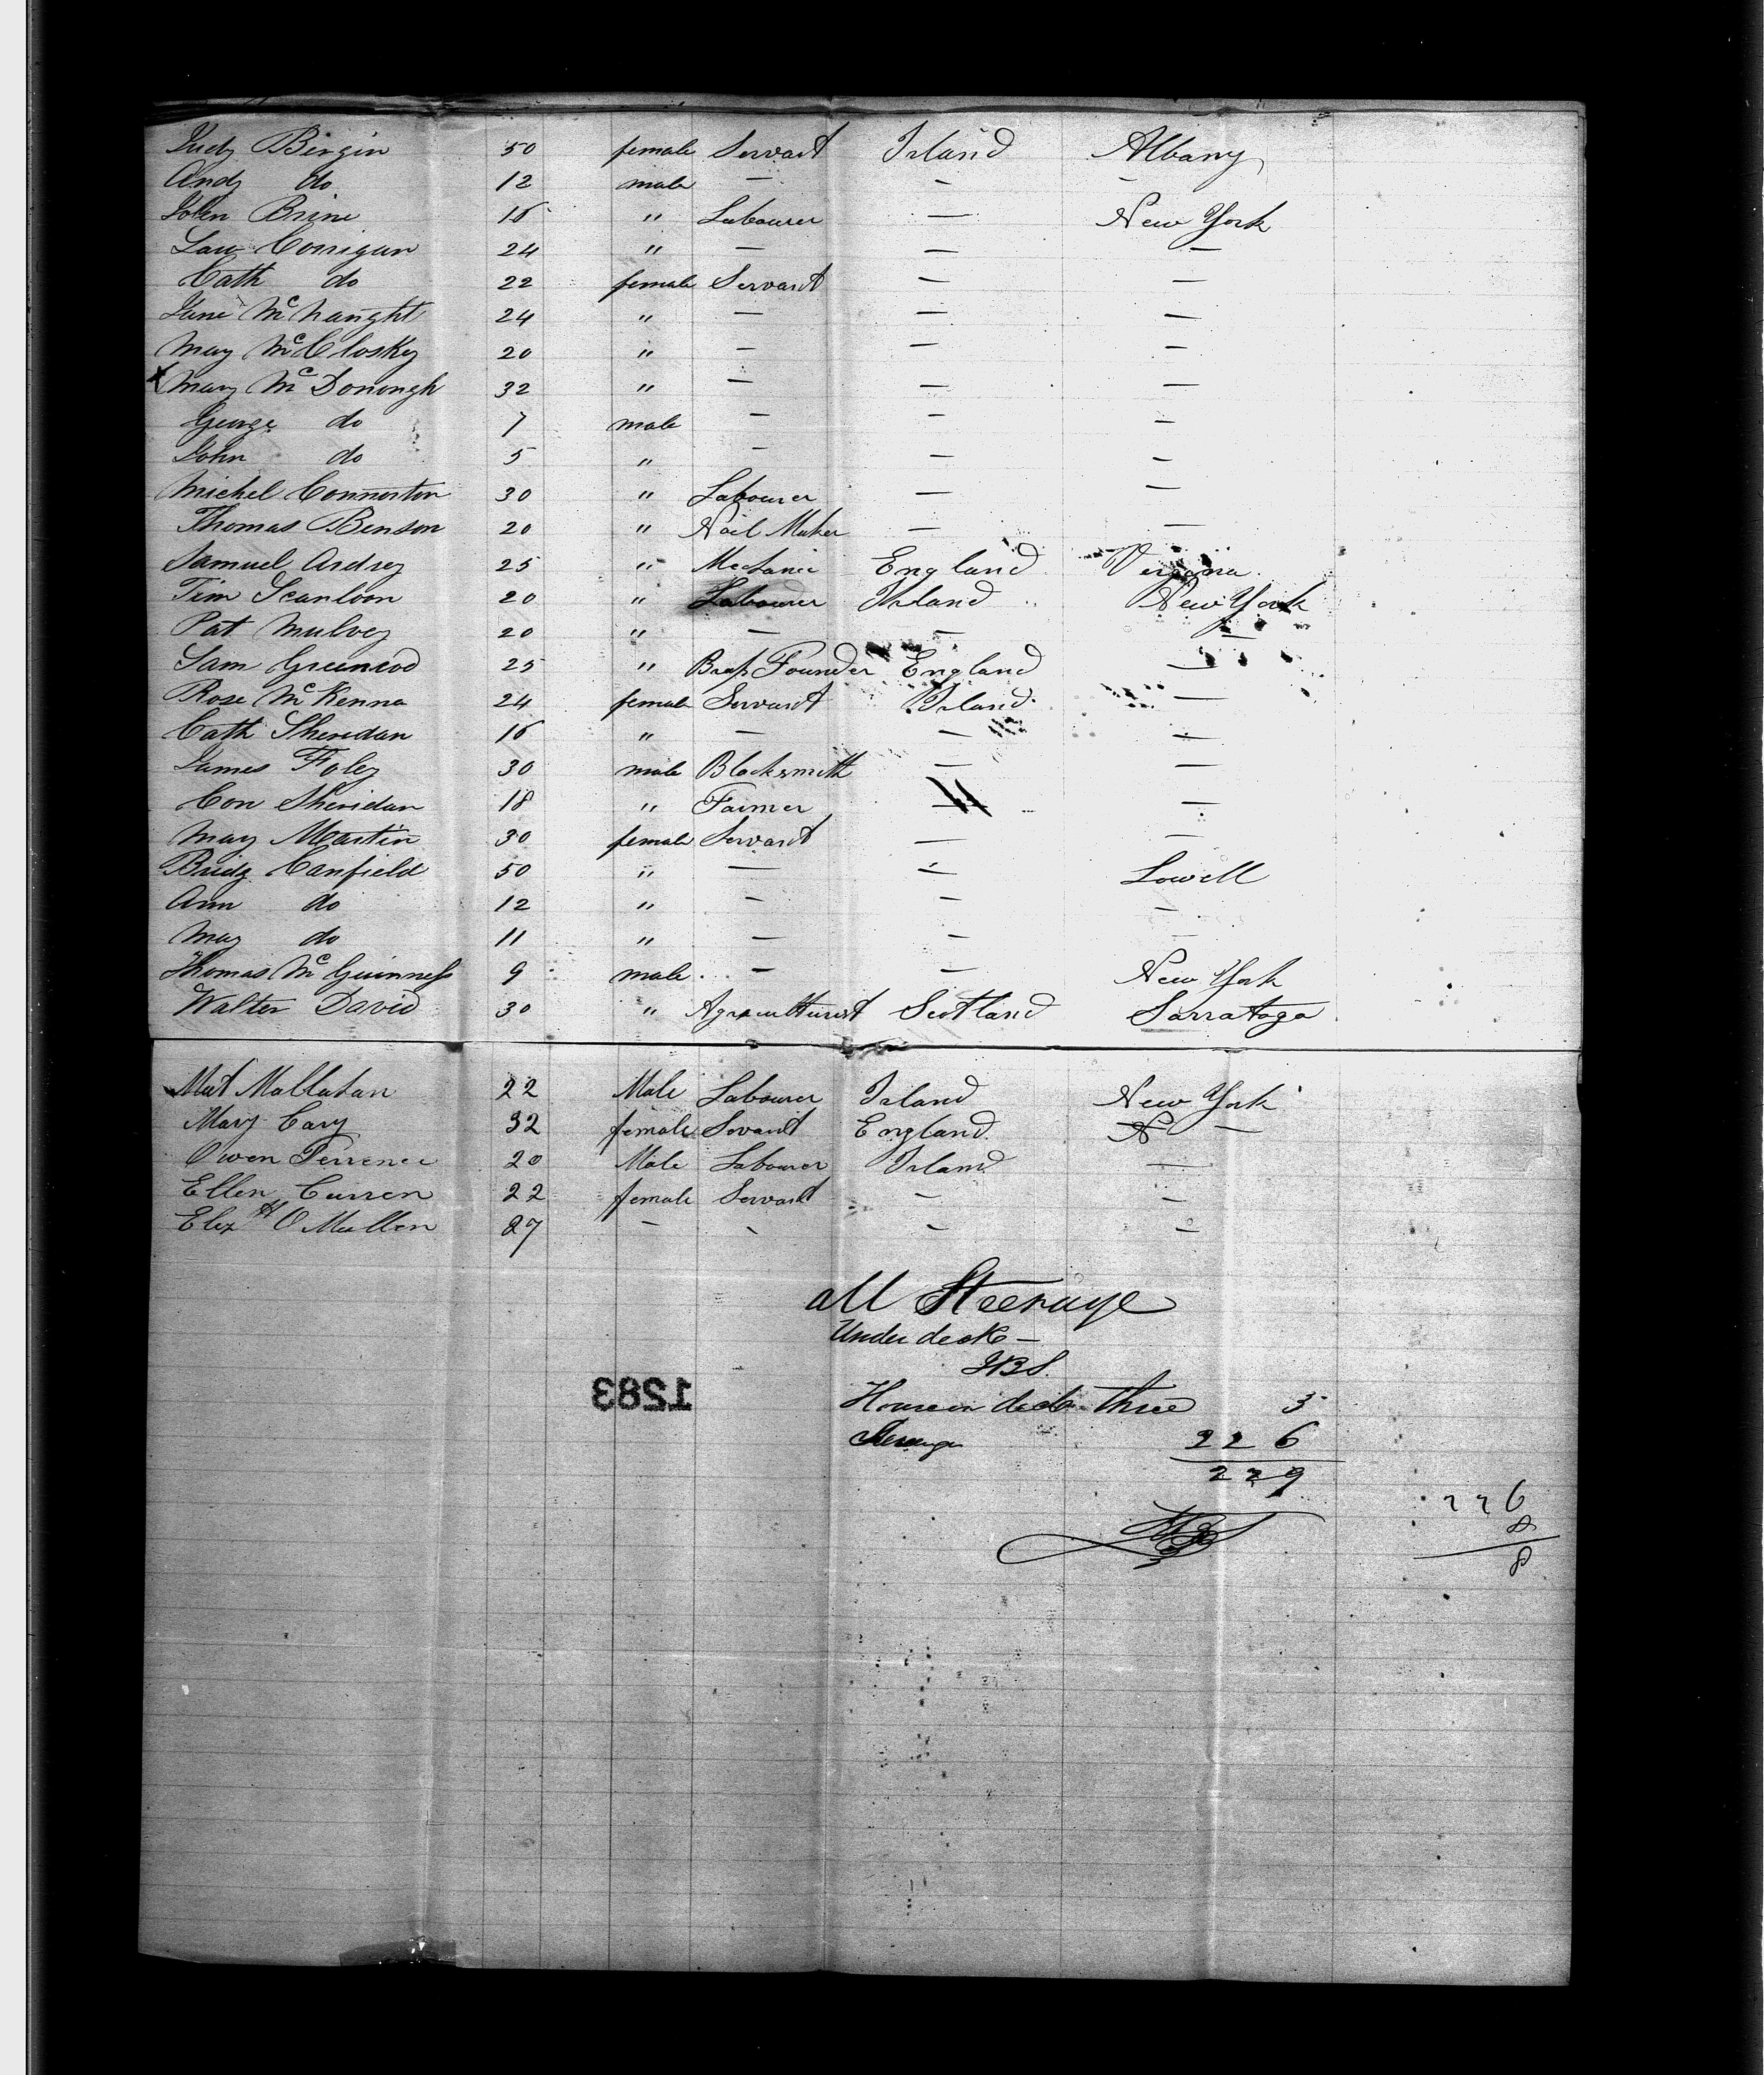 Judy Bergin 50 female Servant Irland Albany
Andy do 12 male — — —
John Brine 16 " Labourer — New York
Law Corrigan 24 " — — —
Cath do 22 female Servant — —
Jane McNaught 24 " — — —
Mary McClosky 20 " — — —
x Mary McDonongh 32 " — — —
George do 7 male — — —
John do 5 " — — —
Michel Connorton 30 " Labourer — —
Thomas Benson 20 " Nail Maker — —
Samuel Ardrey 25 " Mechanic England Virginia
Tim Scanloon 20 " Labourer Irland New York
Pat Mulvey 20 " — — —
Sam Greenwod 25 " Brass Founder England —
Rose McKenna 24 female Servant Irland —
Cath Sheridan 16 " — — —
James Foley 30 male Blacksmith — —
Con Sheridan 18 " Farmer — —
Mary Martin 30 female Servant — —
Bridg Canfield 50 " — — Lowell
Ann do 12 " — — —
Mary do 11 " — —
Thomas McGuinness 9 male — — New York
Walter David 30 " Agraculturist Scotland Sarratoga
Mat Mallahan 22 Male Labourer Irland New York
Mary Cary 32 female Servant England —
Owen Terrence 20 Male Labourer Irland —
Ellen Curren 22 female Servant — —
Eliz O Mullen 27 — — — —
all Steerage
Under deck —
JBS.
House on deck three 3
Steerage 226
229
226
8
8
1283